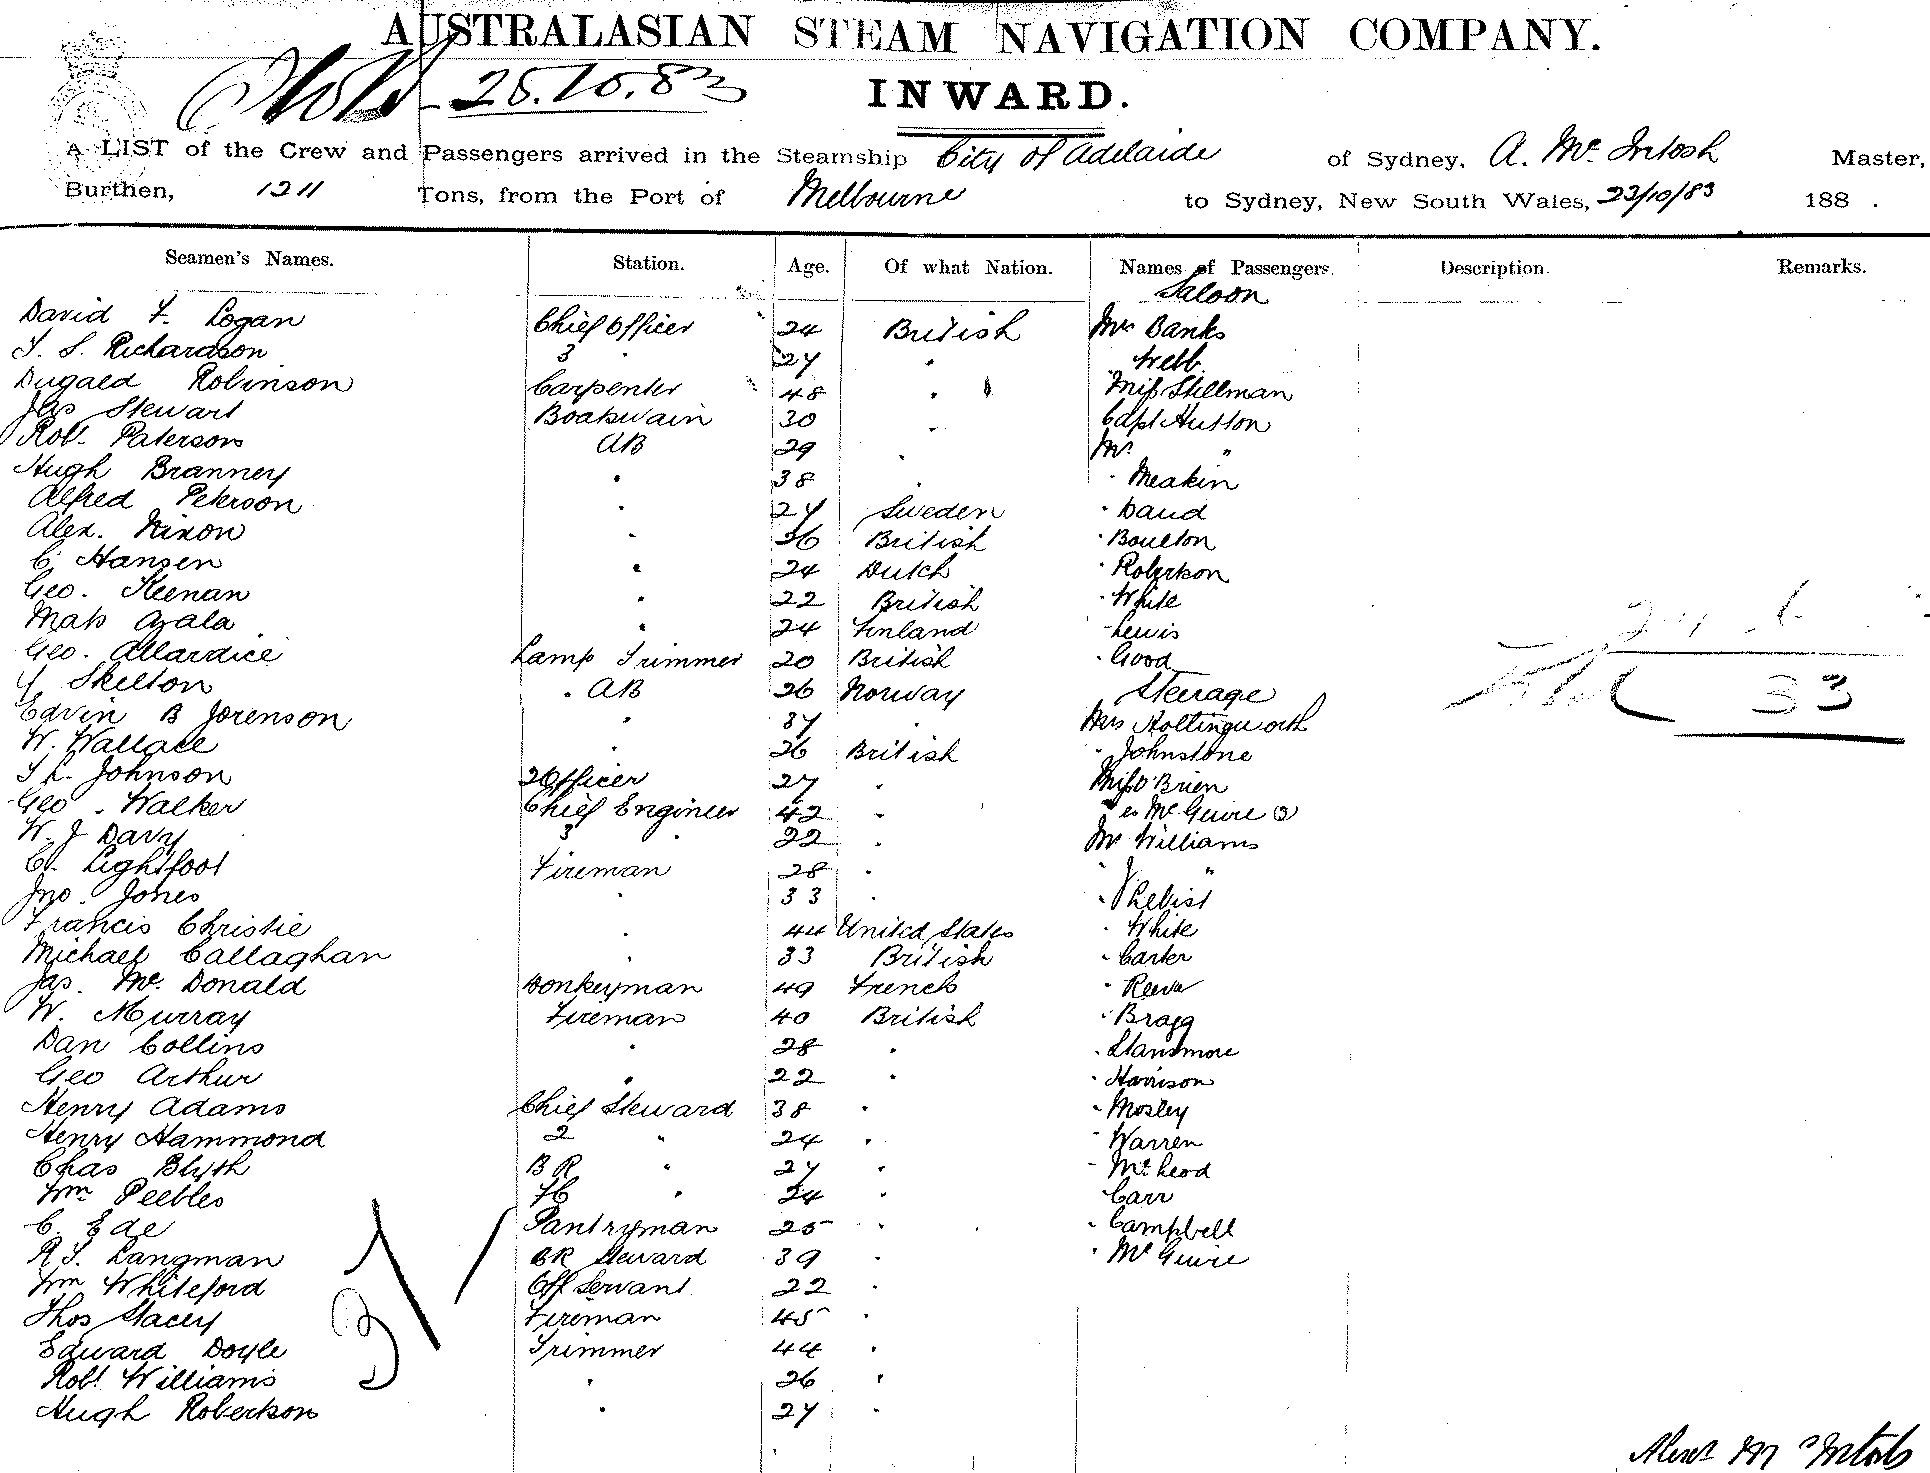 AUSTRALASIAN STEAM NAVIGATION COMPANY.
25.10.83
INWARD.
A LIST of the Crew and Passengers arrived in the Steamship City of Adelaide of Sydney, A. Mc Intosh Master,
Burthen, 1211 Tons, from the Port of Melbourne to Sydney, New South Wales, 23/10/83 188 .
Seamen's Names. Station. Age. Of what Nation. Names of Passengers. Description. Remarks.
Saloon
David F. Logan Chief Officer 24 British Mrs Banks
T. S. Richardson 3 " 27 " Webb
Dugald Robinson Carpenter 48 " Miss Stillman
Jas Stewart Boatswain 30 " Capt Hutton
Robt Paterson AB 29 " Mr "
Hugh Branney " 38 " " Meakin
Alfred Peterson " 27 Sweden " Daud
Alex. Nixon " 36 British " Boulton
C. Hansen " 24 Dutch " Robertson
Geo. Keenan " 22 British " White
Mats Azala " 24 Finland " Lewis
Geo. Allardice Lamp Trimmer 20 British " Good
Skelton " AB 26 Norway Steerage
Edvin B Jorenson " 37 " Mrs Hollingworth
W. Wallace " 26 British " Johnstone
T L. Johnson 2 Officer 27 " Miss O'Brien
Geo. Walker Chief Engineer 42 " " es Mc Guire (3)
W. J Davy 3 " 22 " Mr Williams
C. Lightfoot Fireman 28 " " "
Jno. Jones " 33 "
Francis Christie " 44 United States " White
Michael Callaghan " 33 British " Carter
Jas. Mc Donald Donkeyman 49 French " Reeve
W. Murray Fireman 40 British " Bragg
Dan Collins " 28 " " Stansmore
Geo Arthur " 22 " " Harrison
Henry Adams Chief Steward 38 " " Mosley
Henry Hammond 2 " 24 " " Warren
Chas Blyth B R " 27 " " McLeod
Wm Peebles FC " 24 " " Carr
C. Ede Pantryman 25 " " Campbell
R. T. Langman BR Steward 39 " " Mc Guire
Wm Whiteford Off Servant 22 "
Thos Stacey Fireman 45 "
Edward Doyle Trimmer 44 "
Robt Williams " 26 "
Hugh Robertson " 27 "
33
37
Alexr McIntosh